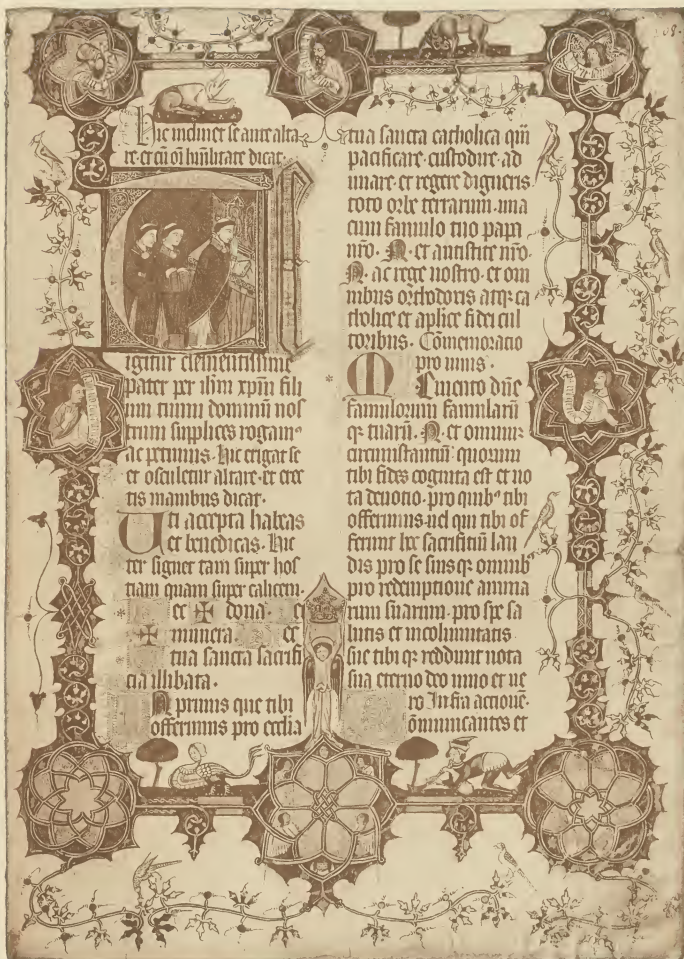 08.
Hic inclinet se ante alta
re et cū oī humilitate dicat.
TE
igitur clementissime
pater per ihm xpm fili
um tuum dominū nos
trum supplices rogamꝰ
ac petimus. Hic erigat se
et osculetur altare. et erec
tis manibus dicat.
Uti accepta habeas
et benedicas. Hic
ter signet tam super hos
tiam quam super calicem.
* et ✠ dona. et
✠ munera et
tua sancta sacrifi
cia illibata.
In primis que tibi
offerimus pro ecclīa
tua sancta catholica quā
pacificare. custodire. ad
unare. et regere digneris
toto orbe terrarum. una
cum famulo tuo papa
nr̄o. N. et antistite nr̄o.
N. ac rege nostro. et om
nibus orthodoxis atqꝫ ca
tholice et aplice fidei cul
toribus. Cōmemoracio
pro uiuis.
* Memento dn̄e
famulorum famularū
qꝫ tuarū. N. et omnium
circumstantiū quorum
tibi fides cognita est et no
ta deuotio. pro quibꝰ tibi
offerimus. uel qui tibi of
ferunt hoc sacrifitiū lau
dis pro se suis qꝫ omnibꝰ
pro redemptione anima
rum suarum. pro spe sa
lutis et incolumitatis
sue tibi qꝫ reddunt uota
sua eterno deo uiuo et ue
ro Infra actionē.
Cōmunicantes et